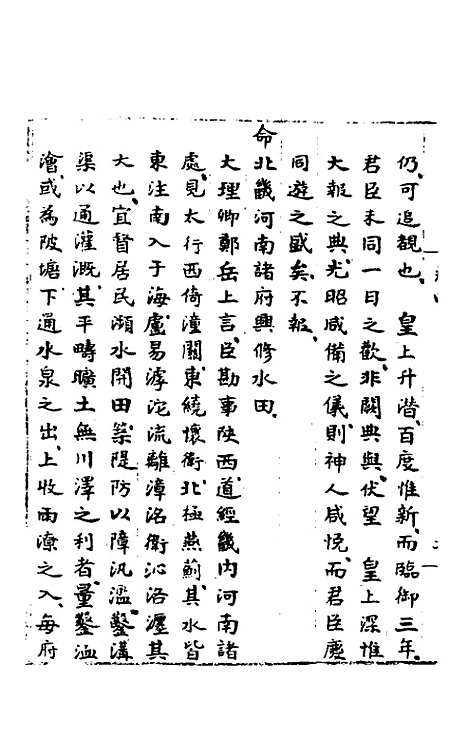 仍可追覩也 皇上升潛百度惟新而臨御三年
君臣未同一日之歡非闕典與伏望 皇上深惟
大報之典光昭咸備之儀則神人咸悅而君臣慶
同遊之盛矣不報
命北畿河南諸府興修水田
大理卿鄭岳上言臣勘事陝西道經畿内河南諸
處見太行西倚潼關東繞懷衛北極燕薊其水皆
東注南入于海盧易滹沱流離漳洺衛沁洛瀍其
大也宜督居民瀕水開田築隄防以障汎濫鑿溝
渠以通灌溉其平疇曠土無川澤之利者量鑿洫
澮或為陂塘下通水泉之出上收雨潦之入每府